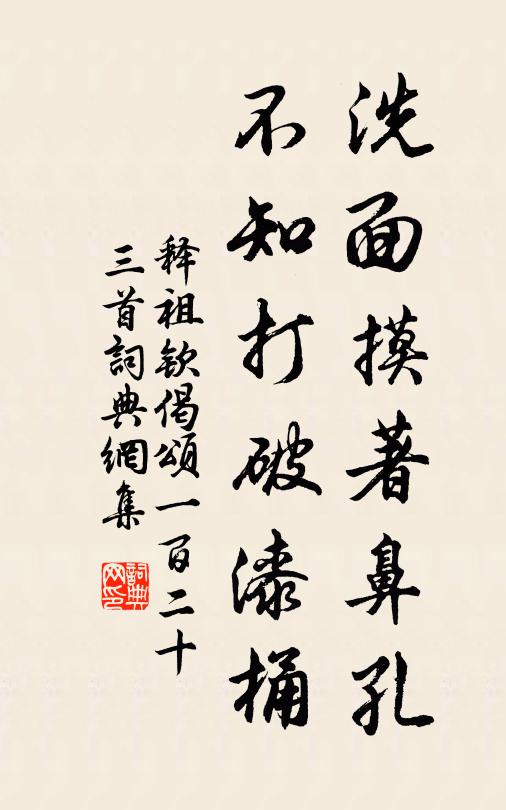 洗面摸著鼻孔
不知打破漆桶
释祖钦偈頌一百二十
三首詞典網集
詞典网印